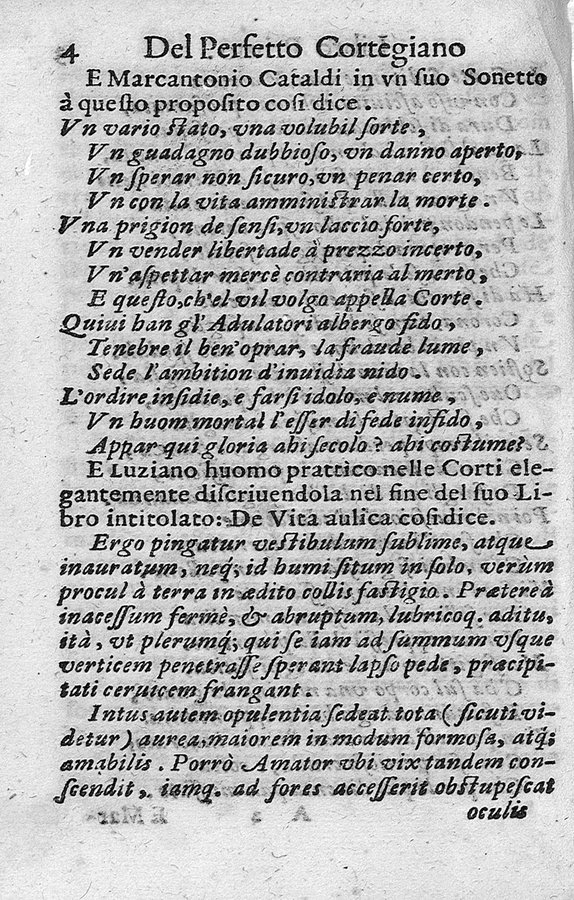 4 Del Perfetto Cortegiano
E Marcantonio Cataldi in vn ſuo Sonetto
à queſto propoſito coſi dice.
Vn vario ſtato, vna volubil ſorte,
Vn guadagno dubbioſo, vn danno aperto,
Vn ſperar non ſicuro, vn penar certo,
Vn con la vita amminiſtrar la morte.
Vna prigion de ſenſi, vn laccio forte,
Vn vender libertade à prezzo incerto,
Vn'aſpettar mercè contraria al merto,
E queſto, ch'el vil volgo appella Corte.
Quiui han gl' Adulatori albergo fido,
Tenebre il ben'oprar, la fraude lume,
Sede l'ambition d'inuidia nido.
L'ordire inſidie, e farſi idolo, e nume,
Vn huom mortal l'eſſer di fede infido,
Appar qui gloria ahi ſecolo? ahi coſtume?
E Luziano huomo prattico nelle Corti ele-
gantemente diſcriuendola nel fine del ſuo Li-
bro intitolato: De Vita aulica coſi dice.
Ergo pingatur veſtibulum ſublime, atque
inauratum, neq; id humi ſitum in ſolo, verùm
procul à terra in ædito collis faſtigio. Prætereà
inaceſſum fermè, & abruptum, lubricoq. aditu,
ità, vt plerumq; qui ſe iam ad ſummum vſque
verticem penetraſſe ſperant lapſo pede, præcipi-
tati ceruicem frangant.
Intus autem opulentia ſedeat tota (ſicuti vi-
detur) aurea, maiorem in modum formoſa, atq;
amabilis. Porrò Amator vbi vix tandem con-
ſcendit, iamq. ad fores acceſſerit obſtupeſcat
oculis